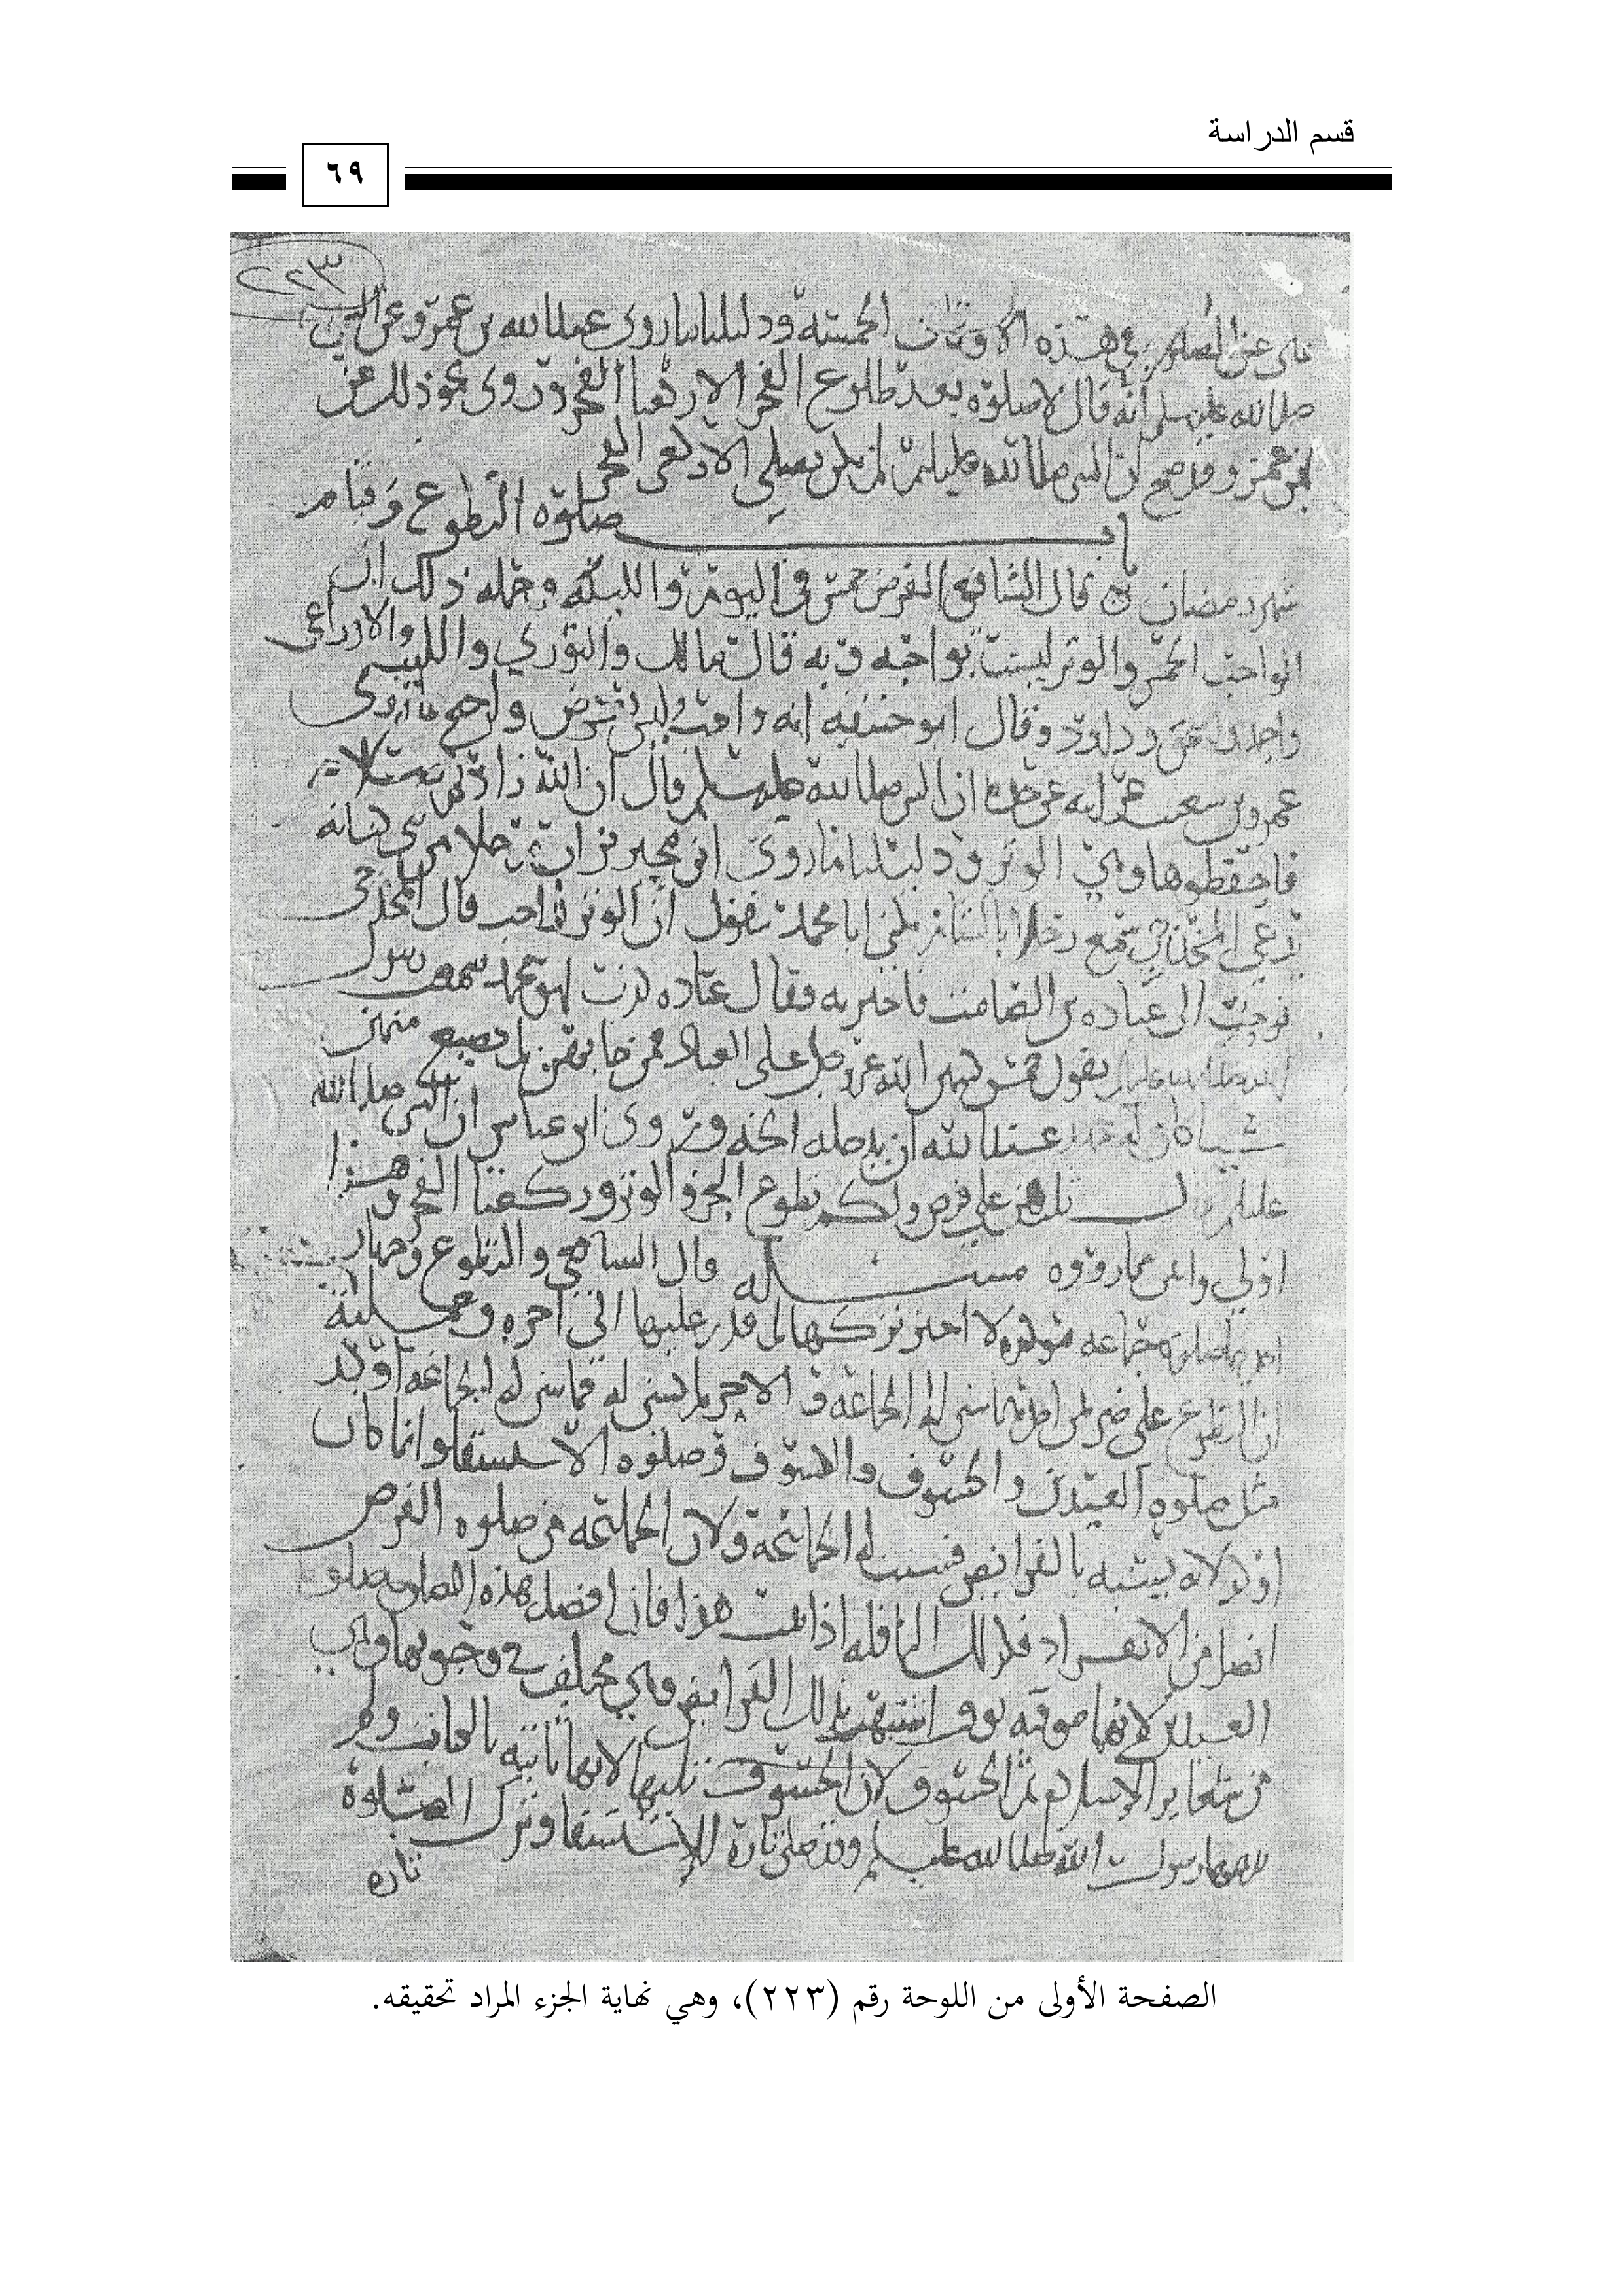 قسم الدراسة
٦٩
٢٢٣
هذه الاوقات الخمسة ودليلنا ما روى عبدالله بن عمرو عن النبي
صلى الله عليه وسلم انه قال لا صلوة بعد طلوع الفجر الا ركعتا الفجر وروى نحو ذلك عن
ابن عمر وقد صح ان النبي صلى الله عليه وسلم لم يكن يصلي الا ركعتي الفجر
باب صلوة التطوع وقيام
شهر رمضان قال الشافعي الفرض خمس في اليوم والليلة وجملة ذلك ان
الواجب الخمس والوتر ليست بواجبة وبه قال مالك والثوري والليث والاوزاعي
واحمد واسحق وداود وقال ابو حنيفة انه واجب وليس بفرض واحتج ما روى
عمرو بن شعيب عن ابيه عن جده ان النبي صلى الله عليه وسلم قال ان الله زادكم صلاة
فاحفظوها وهي الوتر ودليلنا ما روى ابن محيريز ان رجلا من بني كنانة
يدعى المخدجي سمع رجلا بالشام يكنى ابا محمد يقول ان الوتر واجب قال المخدجي
فرحت الى عبادة بن الصامت فاخبرته فقال عبادة كذب ابو محمد سمعت رسول
الله صلى الله عليه وسلم يقول خمس كتبهن الله عز وجل على العباد فمن جا بهن لم يضيع منهن
شييا كان له عند الله ان يدخله الجنة وروى ابن عباس ان النبي صلى الله
عليه وسلم تلاث هن علي فرض ولكم تطوع النحر والوتر وركعتا الفجر هذا
اولى واعم مما رووه مسئله قال الشافعي والتطوع وجهان
احدهما صلوة جماعة مؤكدة لا اجيز تركها لمن قدر عليها الى اخره وجملته
ان التطوع على ضربين احدهما سن له الجماعة والاخر لم تسن له فما سن له الجماعة اوكد
مثل صلوة العيدين والخسوف والكسوف وصلوة الاستسقا وانما كان
اوكد لانه يشبه بالفرايض فسنت له الجماعة ولان الجماعة في صلوة الفرض
افضل من الانفراد فكذلك النافلة اذا ثبت هذا فان افضل هذه الصلوات صلوة
العيدين لانها موقتة بوقت اشبهت بذلك الفرايض وهي مختلف في وجوبها وهي
من شعاير الاسلام ثم الخسوف لان الخسوف تليها لانها ثابتة بالكتاب ولم
يدعها رسول الله صلى الله عليه وسلم وقد صلى تارة للاستسقا وترك الصلوة
تارة
الصفحة الأولى من اللوحة رقم (٢٢٣)، وهي نهاية الجزء المراد تحقيقه.